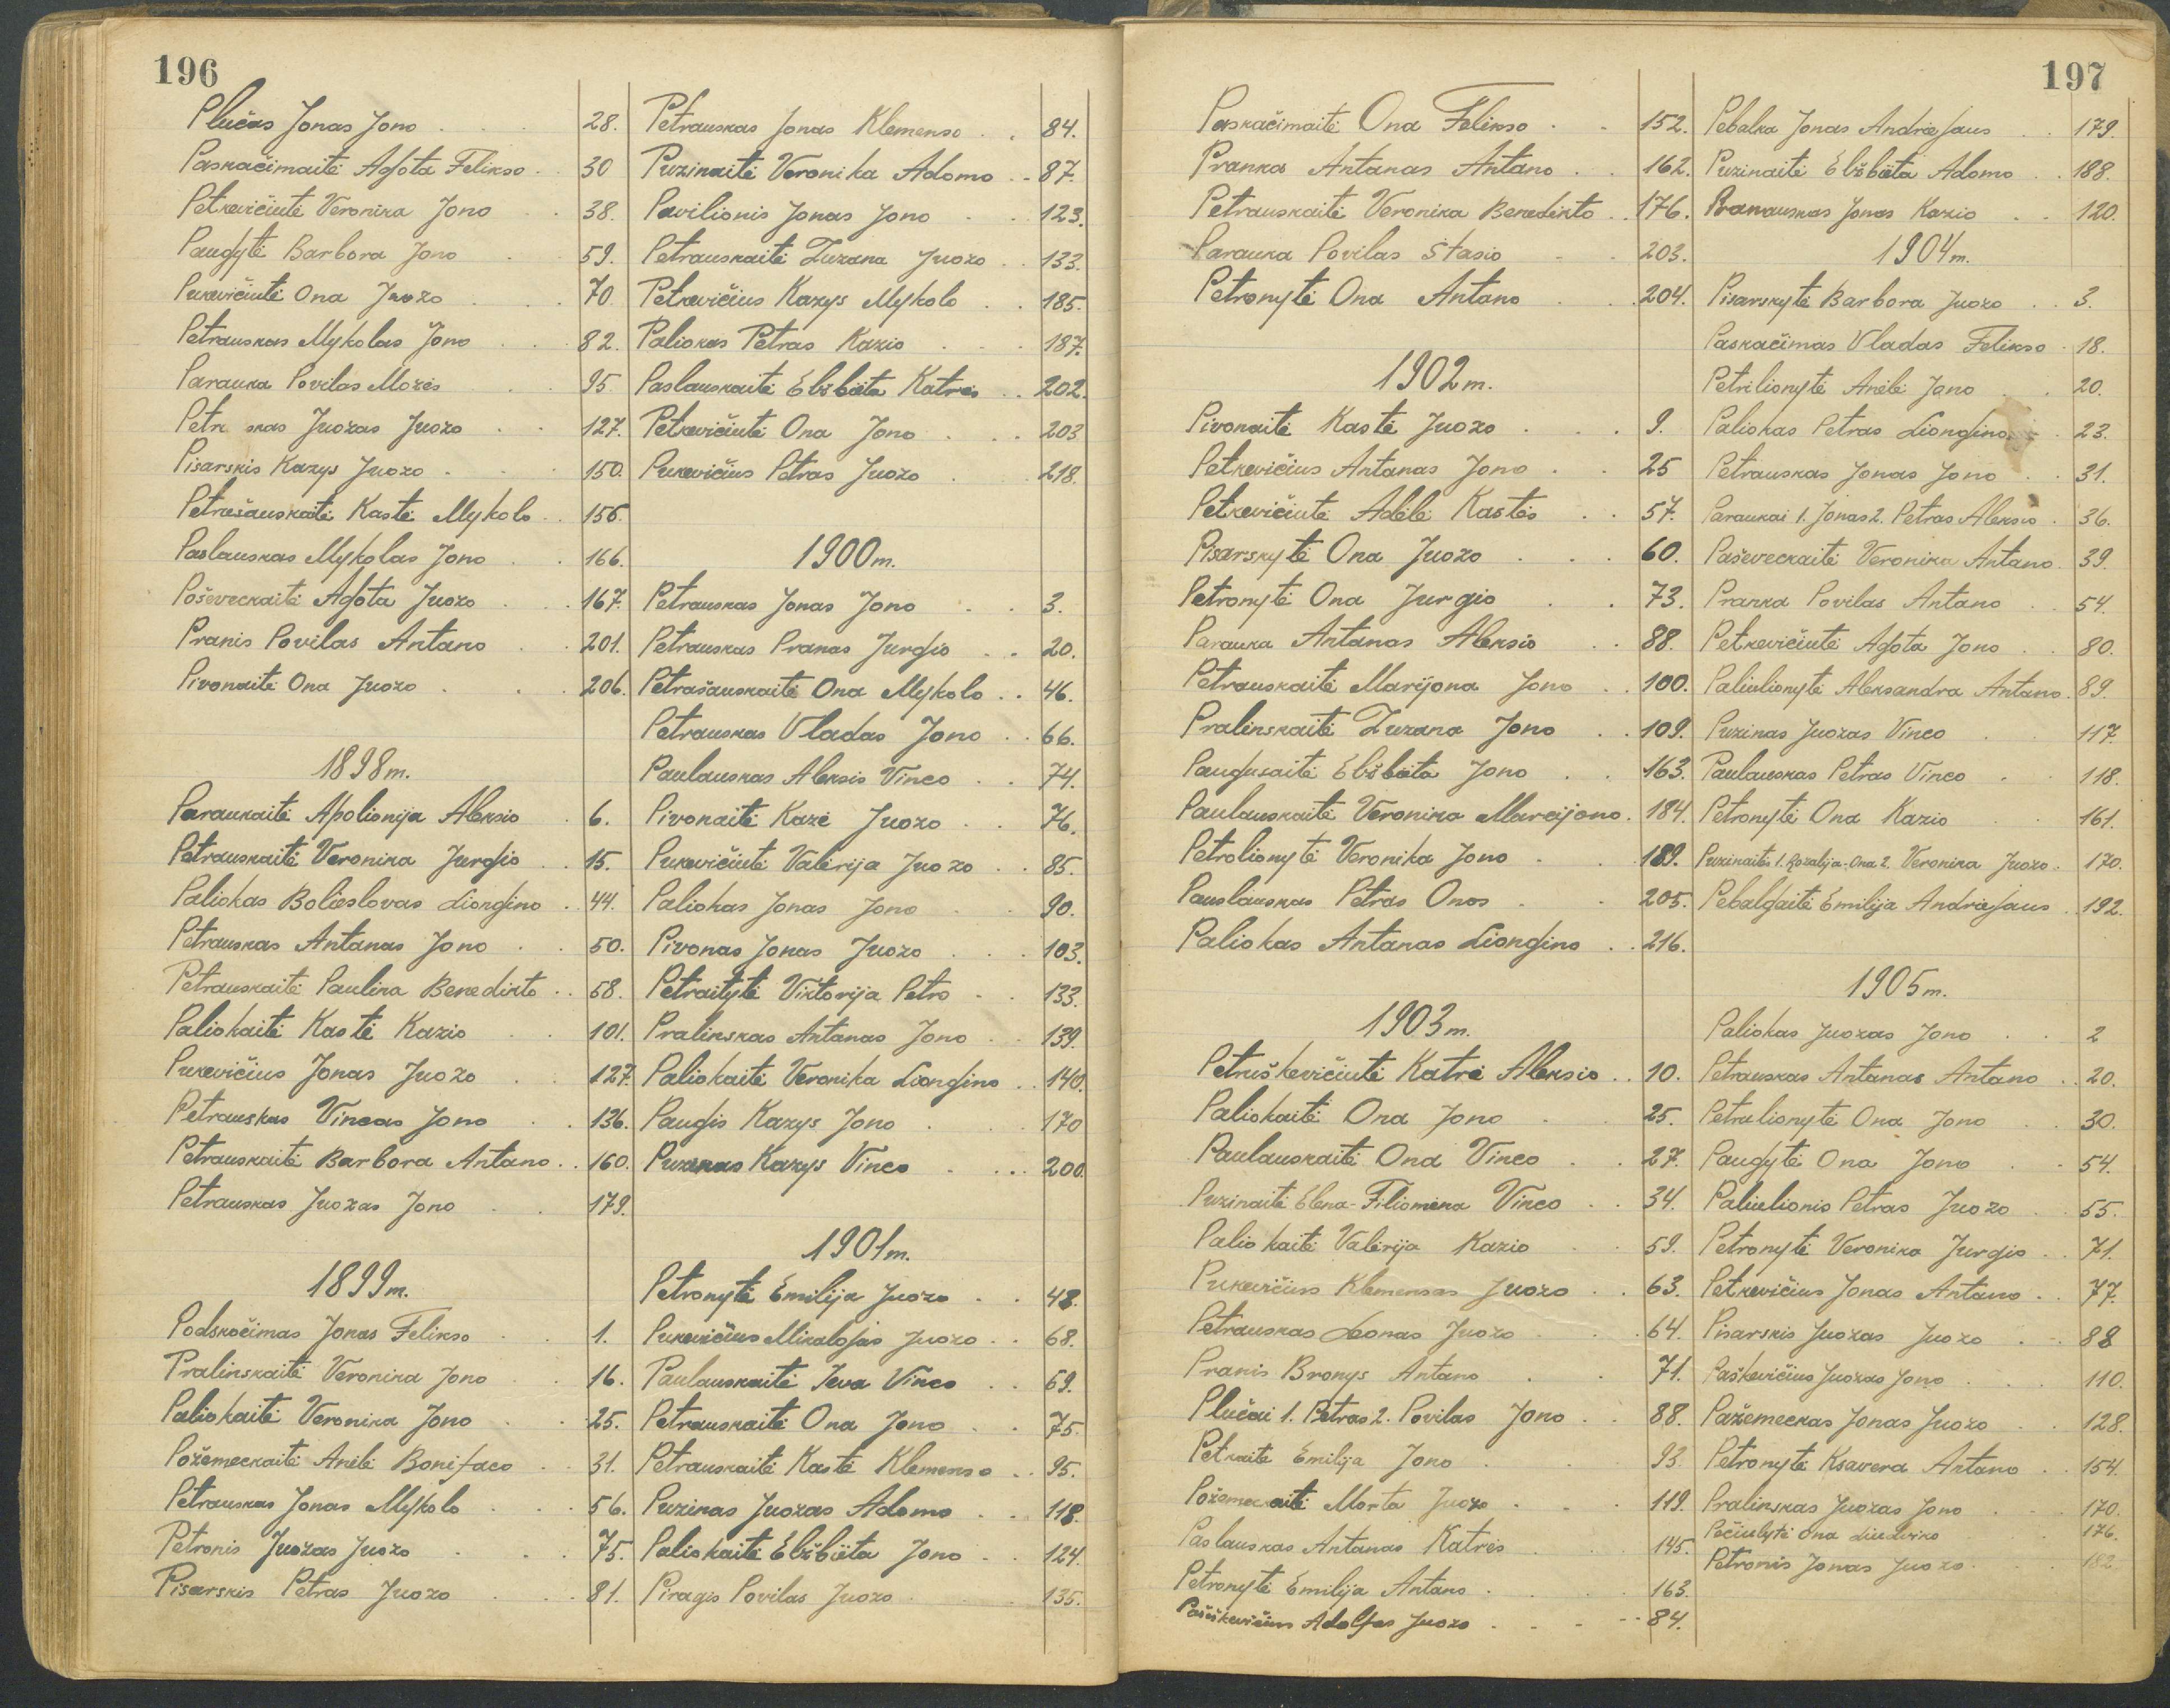 196
Plučas Jonas Jono . . . 28.
Paskačimaitė Agota Felikso . 30
Petkevičiutė Veronika Jono . . 38.
Paugytė Barbora Jono . 59.
Pukevičiutė Ona Juozo . . 70.
Petrauskas Mykolas Jono . . 82.
Parauka Povilas Mozės . . 95.
Juozas Juozo . . 127.
Pisarskis Kazys Juozo . . . 150.
Petrašauskaitė Kastė Mykolo . . 156.
Paslauskas Mykolas Jono . . 166.
Poševeckaitė Agota Juozo . . 167.
Pranis Povilas Antano . . 201.
Pivonaitė Ona Juozo . . . 206.
1898 m.
Paraukaitė Apolionija Aleksio . 6.
Petrauskaitė Veronika Jurgio . . 15.
Paliokas Bolieslovas Liongino . 44.
Petrauskas Antanas Jono . . 50.
Petrauskaitė Paulina Benedikto . . 58.
Paliokaitė Kastė Kazio . . 101.
Pukevičius Jonas Juozo . . 127.
Petrauskas Vincas Jono . . 136.
Petrauskaitė Barbora Antano . . 160.
Petrauskas Juozas Jono . . 179.
1899 m.
Podskočimas Jonas Felikso . . 1.
Pralinskaitė Veronika Jono . . 16.
Paliokaitė Veronika Jono . . 25.
Požemeckaitė Anėlė Bonifaco . . 31.
Petrauskas Jonas Mykolo . . . 56.
Petronis Juozas Juozo . . . 75.
Pisarskis Petras Juozo . . . 81.
Petrauskas Jonas Klemenso . . 84.
Puzinaitė Veronika Adomo . . 87.
Pavilionis Jonas Jono . . 123.
Petrauskaitė Zuzana Juozo . . 133.
Petkevičius Kazys Mykolo . . 185.
Paliokas Petras Kazio . . . 187.
Paslauskaitė Elžbieta Katrės . . 202.
Petkevičiutė Ona Jono . . . 203
Pukevičius Petras Juozo . . 218.
1900 m.
Petrauskas Jonas Jono . . 3.
Petrauskas Pranas Jurgio . . 20.
Petrašauskaitė Ona Mykolo . . 46.
Petrauskas Vladas Jono . . 66.
Paulauskas Aleksis Vinco . . 74.
Pivonaitė Kazė Juozo . . 76.
Pukevičiutė Valerija Juozo . . 85.
Paliokas Jonas Jono . . 90.
Pivonas Jonas Juozo . . . 103.
Petraitytė Viktorija Petro . . 133.
Pralinskas Antanas Jono . . 139.
Paliokaitė Veronika Liongino . . 140.
Paugis Kazys Jono . . . 170
Puzinas Kazys Vinco . . . . 200.
1901 m.
Petronytė Emilija Juozo . . 48.
Pukevičius Mikalojas Juozo . . 68.
Paulauskaitė Ieva Vinco . . 69.
Petrauskaitė Ona Jono . . 75.
Petrauskaitė Kastė Klemenso . . 95.
Puzinas Juozas Adomo . . 118.
Paliokaitė Elžbieta Jono . . 124.
Piragis Povilas Juozo . . . 135.
197
Paskačimaitė Ona Felikso . . 152.
Pranka Antanas Antano . . 162.
Petrauskaitė Veronika Benedikto . . 176.
Parauka Povilas Stasio . . 203.
Petronytė Ona Antano . . . 204.
1902 m.
Pivonaitė Kastė Juozo . . . 9.
Petkevičius Antanas Jono . . 25
Petkevičiutė Adėlė Kastės . . 57.
Pisarskytė Ona Juozo . . . 60.
Petronytė Ona Jurgio . . 73.
Parauka Antanas Aleksio . . 88.
Petrauskaitė Marijona Jono . . 100.
Pralinskaitė Zuzana Jono . . 109.
Paugusaitė Elžbieta Jono . . 163.
Paulauskaitė Veronika Marcijono . 184.
Petrolionytė Veronika Jono . . 189.
Pauslauskas Petras Onos . . 205.
Paliokas Antanas Liongino . . 216.
1903 m.
Petruškevičiutė Katrė Aleksio . . 10.
Paliokaitė Ona Jono . . 25.
Paulauskaitė Ona Vinco . . 27.
Puzinaitė Elena-Filiomena Vinco . . 34.
Paliokaitė Valerija Kazio . . 59.
Pukevičius Klemensas Juozo . . 63.
Petrauskas Leonas Juozo . . . 64.
Pranis Bronys Antano . . 71.
Plučai 1. Petras 2. Povilas Jono . . 88.
Petkaitė Emilija Jono . . 93.
Požemeckaitė Morta Juozo . . . 119.
Paslauskas Antanas Katrės . . 145.
Petronytė Emilija Antano . . . 163.
Adolfas Juozo . . . . 84.
Pebalka Jonas Andriejaus . . 179.
Puzinaitė Elžbieta Adomo . . 188.
Jonas Kazio . . 120.
1904 m.
Pisarskytė Barbora Juozo . . 3.
Paskačimas Vladas Felikso . 18.
Petrilionytė Anėlė Jono . . 20.
Paliokas Petras Liongino . . 23.
Petrauskas Jonas Jono . . 31.
Paraukai 1. Jonas 2. Petras Aleksio . 36.
Paševeckaitė Veronika Antano . 39.
Pranka Povilas Antano . . 54.
Petkevičiutė Agota Jono . . 80.
Paliulionytė Aleksandra Antano . 89.
Puzinas Juozas Vinco . . 117.
Paulauskas Petras Vinco . . 118.
Petronytė Ona Kazio . . 161.
Puzinaitės 1. Rozalija-Ona 2. Veronika Juozo . 170.
Pebalgaitė Emilija Andriejaus . 192.
1905 m.
Paliokas Juozas Jono . . 2
Petrauskas Antanas Antano . . 20.
Petrulionytė Ona Jono . . 30.
Paugytė Ona Jono . . 54.
Paliulionis Petras Juozo . . 55.
Petronytė Veronika Jurgio . . 71.
Petkevičius Jonas Antano . . 77.
Pisarskis Juozas Juozo . . 88
Paškevičius Juozas Jono . . . 110.
Pažemeckas Jonas Juozo . . 128.
Petronytė Ksavera Antano . . 154.
Pralinskas Juozas Jono . . . 170.
Pečiulytė Ona Liudviko . 176.
Petronis Jonas Juozo . . . 182